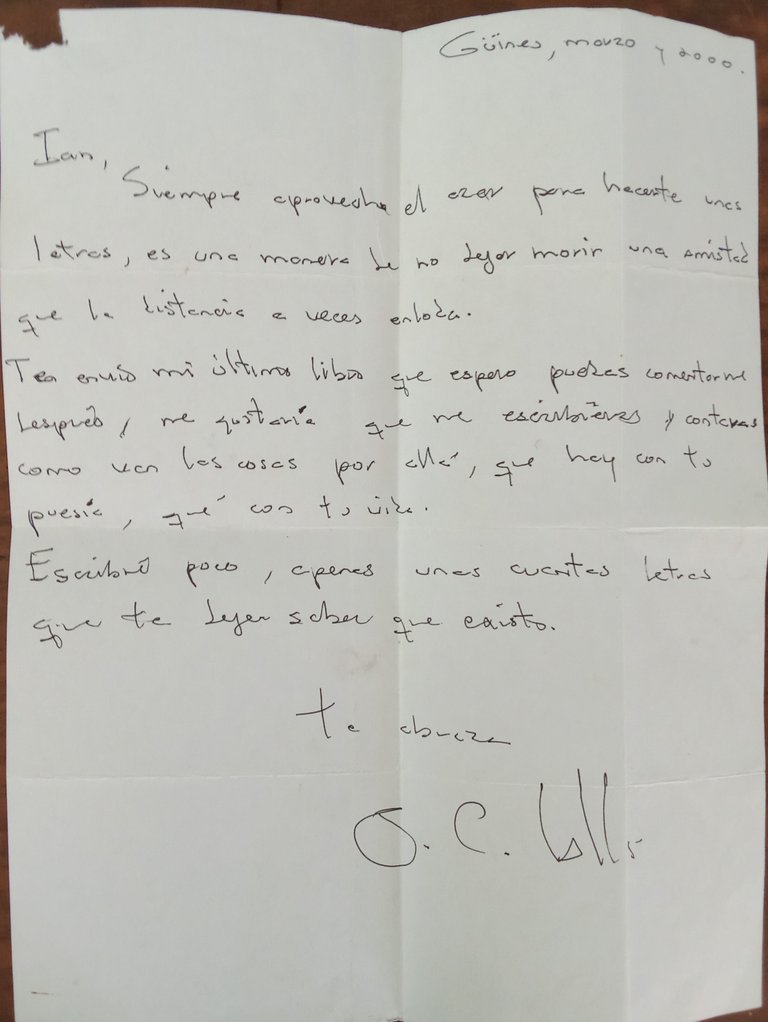 Güines, marzo y 2000.
Ian,
Siempre aprovecho el azar para hacerte unas
letras, es una manera de no dejar morir una amistad
que la distancia a veces enloda.
Te envío mi último libro que espero puedas comentarme
después, me gustaría que me escribieras y contaras
como van las cosas por allá, que hay con tu
puesía, qué con tu vida.
Escribiré poco, apenas unas cuantas letras
que te dejen saber que existo.
te abraza
O. C.